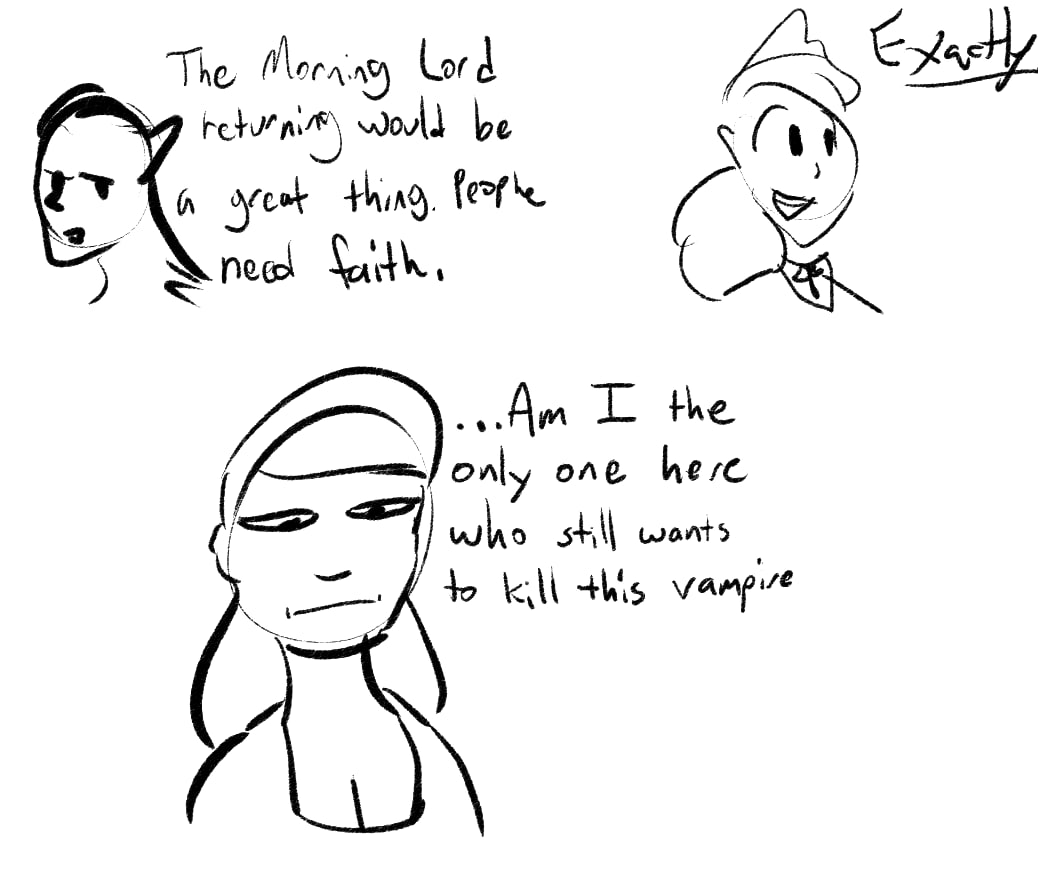 The Morning Lord
returning would be
a great thing. People
need faith.
Exactly
...Am I the
only one here
who still wants
to kill this vampire